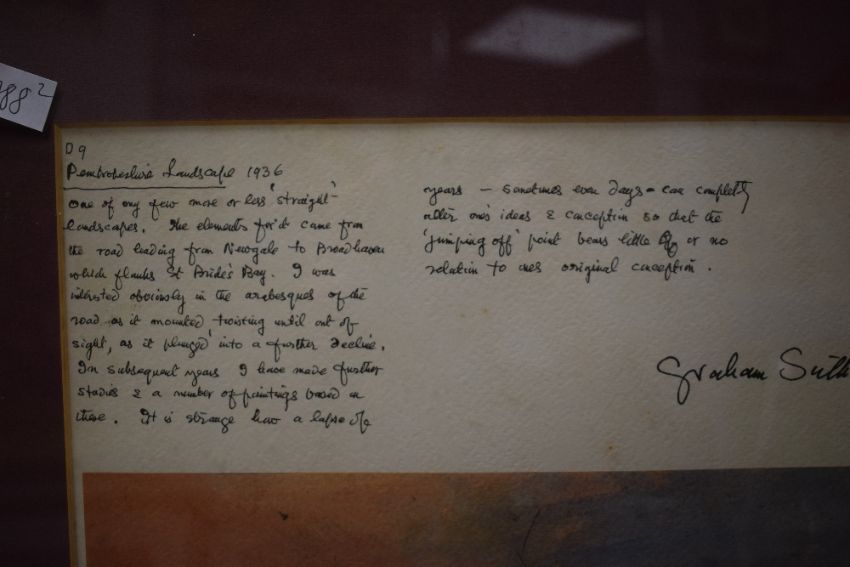 882
D9
Pembrokeshire Landscape 1936
One of my few more or less 'straight'
landscapes. The elements for it came from
the road leading from Newgale to Broadhaven
which flanks St Brides Bay. I was
interested obviously in the arabesques of the
road as it mounted twisting until out of
sight, as it plunged into a further decline.
In subsequent years I have made further
studies & a number of paintings based on
these. It is strange how a lapse of
years – sometimes even days – can completely
alter one's ideas & conception so that the
'jumping off' point bears little or no
relation to ones original conception.
Graham Suth